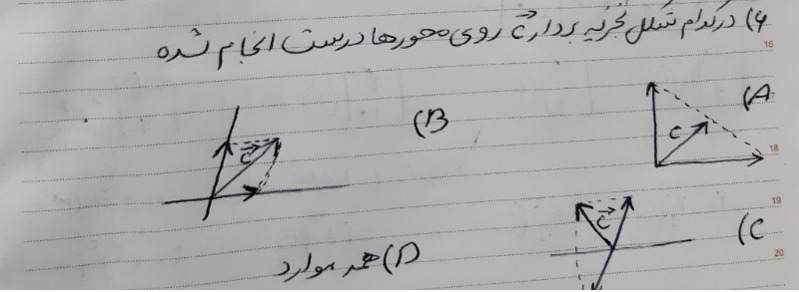 ۶) در کدام شکل تجزیه بردار c⃗ روی محورها درست انجام شده
16
A)
c
B)
c⃗
18
C)
c⃗
19
D) همه موارد
20